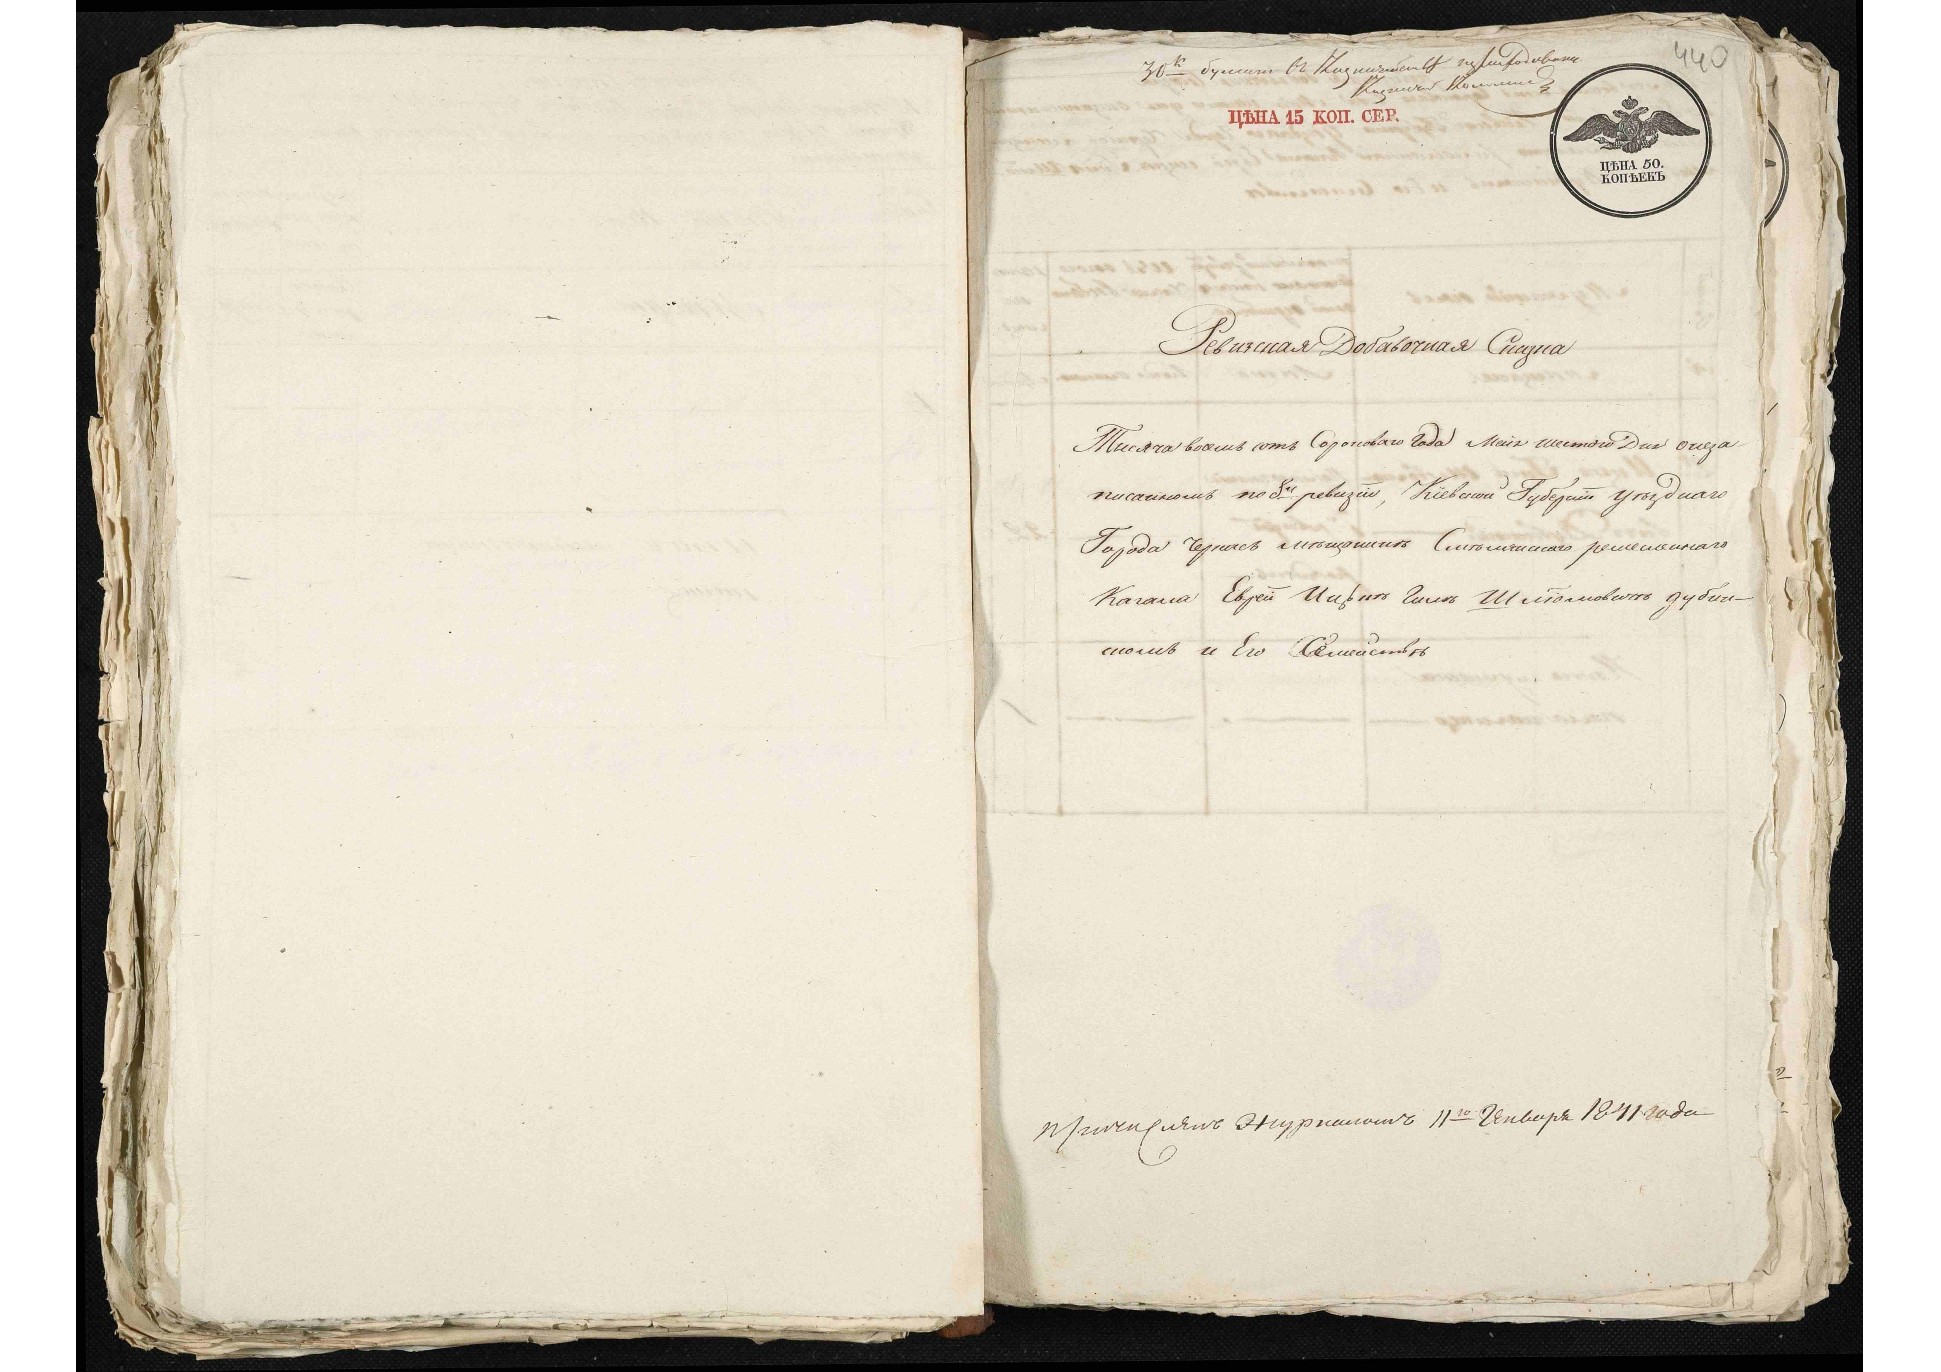 440
30 к бумаги въ Казначействѣ
ЦѢНА 15 КОП. СЕР.
ЦѢНА 50.
КОПѢЕКЪ
Ревизская Добавочная Сказка
Тисяча восемь сотъ Сороковаго Года Мая шестого Дня онеза-
писанномъ по 8й ревизіи, Кіевской Губерніи уѣзднаго
Города Черкасъ мѣщанинѣ Смѣлянскаго ремесленнаго
Кагала Еврей Шлiомовичъ Дубин-
скомъ и Его Семействѣ
Причисленъ Журналомъ 11го Генваря 1841 года